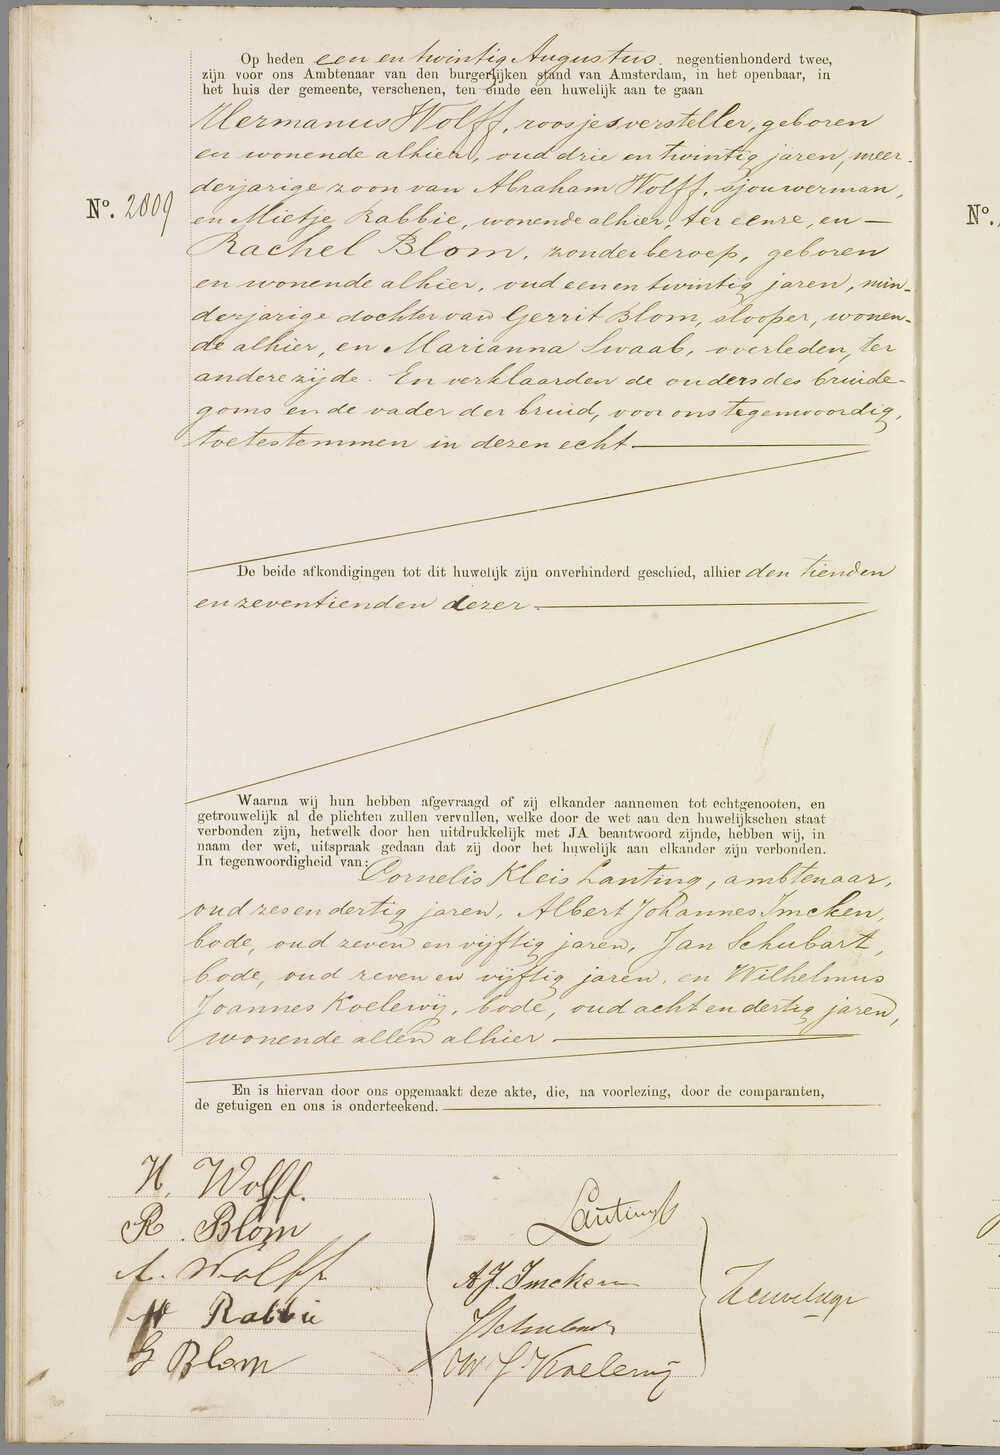 Op heden een en twintig Augustus negentienhonderd twee,
zijn voor ons Ambtenaar van den burgerlijken stand van Amsterdam, in het openbaar, in
het huis der gemeente, verschenen, ten einde een huwelijk aan te gaan
Hermanus Wolff, roosjesversteller, geboren
en wonende alhier, oud drie en twintig jaren, meer-
derjarige zoon van Abraham Wolff, sjouwerman,
No. 2809
en Mietje Rabbie, wonende alhier, ter eenre, en —
No.
Rachel Blom, zonder beroep, geboren
en wonende alhier, oud een en twintig jaren, min-
derjarige dochter van Gerrit Blom, slooper, wonen-
de alhier, en Marianna Swaab, overleden, ter
andere zijde. En verklaarden de ouders des bruide-
goms en de vader der bruid, voor ons tegenwoordig,
toetestemmen in dezen echt.
De beide afkondigingen tot dit huwelijk zijn onverhinderd geschied, alhier den tienden
en zeventienden dezer.
Waarna wij hun hebben afgevraagd of zij elkander aannemen tot echtgenooten, en
getrouwelijk al de plichten zullen vervullen, welke door de wet aan den huwelijkschen staat
verbonden zijn, hetwelk door hen uitdrukkelijk met JA beantwoord zijnde, hebben wij, in
naam der wet, uitspraak gedaan dat zij door het huwelijk aan elkander zijn verbonden.
In tegenwoordigheid van:
Cornelis Kleis Lanting, ambtenaar,
oud zes en dertig jaren, Albert Johannes Imcken,
bode, oud zeven en vijftig jaren, Jan Schubart,
bode, oud zeven en vijftig jaren, en Wilhelmus
Joannes Koelewij, bode, oud acht en dertig jaren,
wonende allen alhier
En is hiervan door ons opgemaakt deze akte, die, na voorlezing, door de comparanten,
de getuigen en ons is onderteekend.
H. Wolff.
R. Blom
A. Wolff
M Rabbie
G Blom
Lanting
A J. Imcken
J Schubart
W J. Koelewij